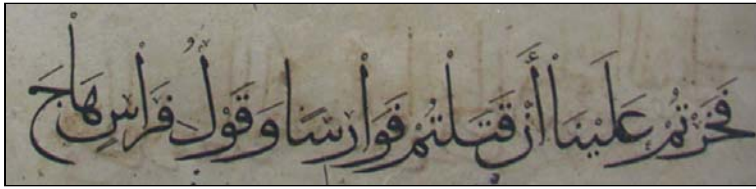 فَخَرْتُمْ عَلَيْنَا أَنْ قَتَلْتُمْ فَوَارِسًا وَقَوْلُ فِرَاسٍ هَاجَ